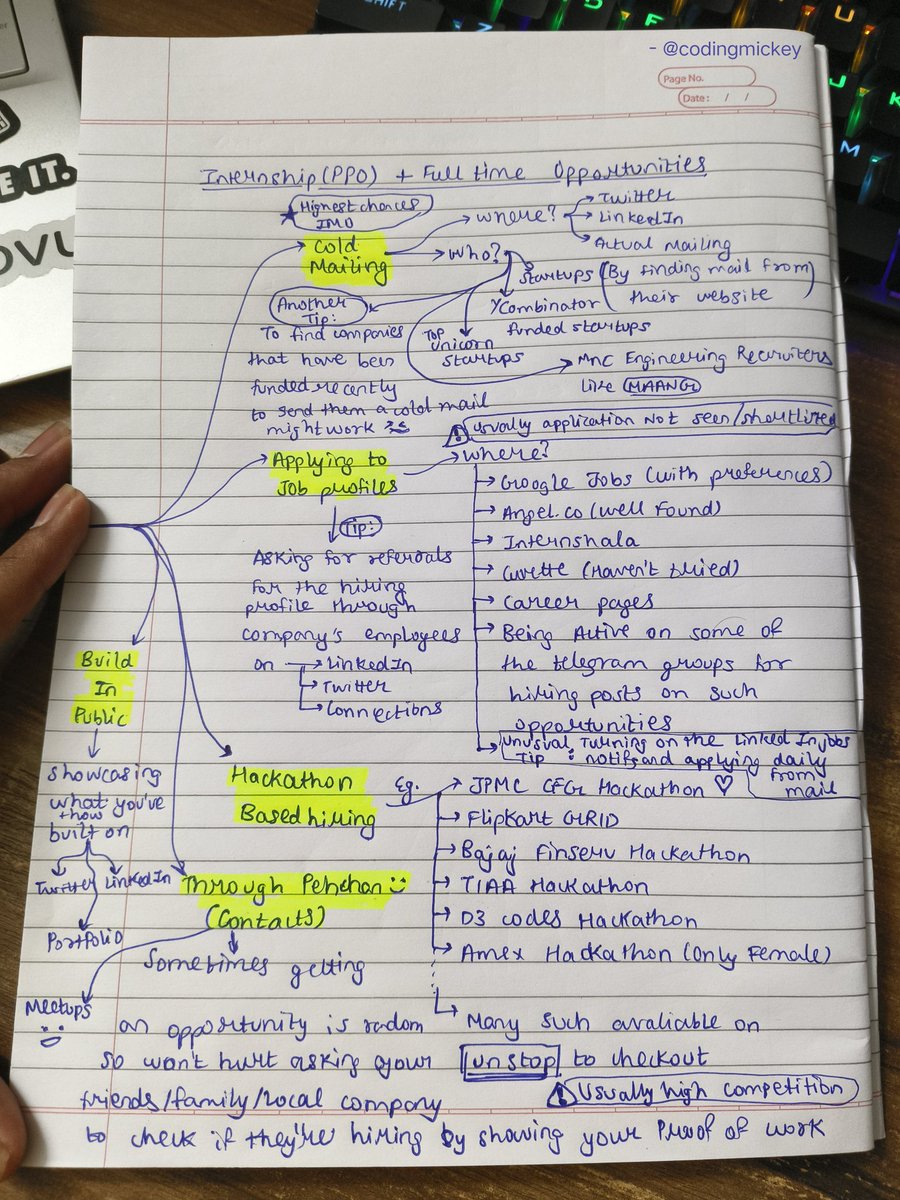 - @codingmickey
Page No.
Date: / /
Internship (PPO) + Full time Opportunities
Highest chances
IMO
Cold
Mailing
Where?
Twitter
LinkedIn
Actual Mailing
Who?
Startups (By finding mail from
their website)
Y Combinator
funded startups
Top
Unicorn
Startups
MNC Engineering Recruiters
like MAANG
Another
Tip:
To find companies
that have been
funded recently
to send them a cold mail
might work
⚠ Usually application Not seen/shortlized
Applying to
Job profiles
Where?
Google Jobs (with preferences)
Angel.co (well found)
Internshala
Cuvette (Haven't tried)
Career pages
Being Active on some of
the telegram groups for
hiring posts on such
opportunities
Unusual Tip: Turning on the LinkedIn jobs
notifs and applying daily
from
mail
Tip:
Asking for referrals
for the hiring
profile through
company's employees
on
LinkedIn
Twitter
Connections
Build
In
Public
showcasing
what you've
+how
built on
Twitter
LinkedIn
Portfolio
Hackathon
Based hiring
Eg.
JPMC CFG Hackathon ♡
Flipkart GRID
Bajaj Finserv Hackathon
TIAA Hackathon
D3 codes Hackathon
Amex Hackathon (Only Female)
Many such avaliable on
unstop to checkout
⚠ Usually high competition
Through Pehchan
(Contacts)
Meetups
Sometimes getting
an opportunity is radom
so won't hurt asking your
friends/family/local company
to check if they're hiring by showing your Proof of work
SHIFT
E IT.